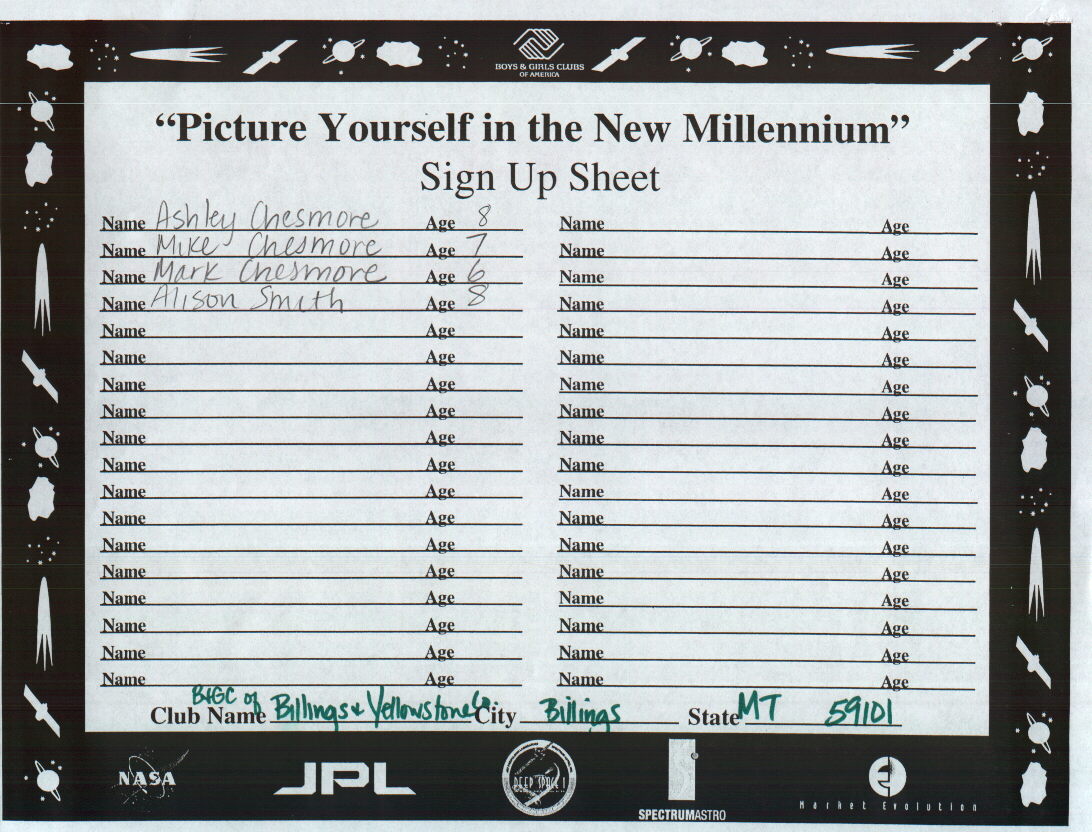 BOYS & GIRLS CLUBS
OF AMERICA
“Picture Yourself in the New Millennium”
Sign Up Sheet
Name Ashley Chesmore Age 8 Name Age
Name Mike Chesmore Age 7 Name Age
Name Mark Chesmore Age 6 Name Age
Name Alison Smith Age 8 Name Age
Name Age Name Age
Name Age Name Age
Name Age Name Age
Name Age Name Age
Name Age Name Age
Name Age Name Age
Name Age Name Age
Name Age Name Age
Name Age Name Age
Name Age Name Age
Name Age Name Age
Name Age Name Age
Name Age Name Age
Name Age Name Age
Club Name B&GC of Billings & Yellowstone Co. City Billings State MT 59101
NASA JPL DEEP SPACE 1 SPECTRUMASTRO Market Evolution